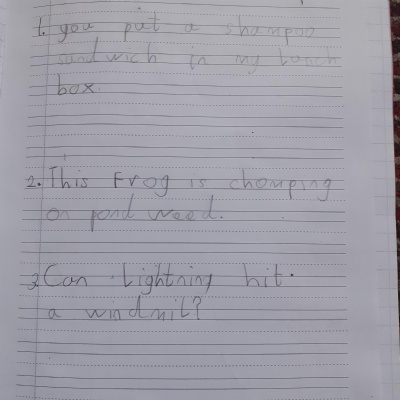 1. you put a shampoo
sandwich in my lunch
box.
2. This Frog is chomping
on pond weed.
3. Can Lightning hit.
a windmil?